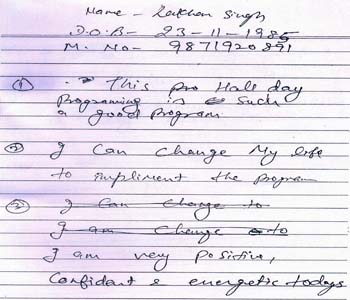 Name - Lakhan Singh
D.O.B - 23-11-1985
M. No - 9871920891
① This pro Half day
Programing is Such
a good program
② I Can Change My life
to impliment the program
③ I Can Change to
I am Change to
I am very Positive,
Confidant & energetic todays